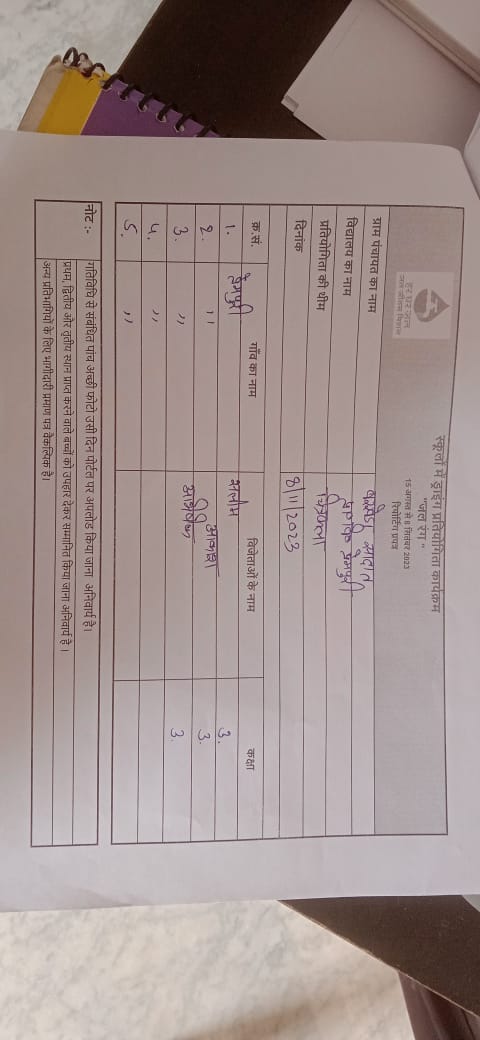 हर घर जल
जल जीवन मिशन
स्कूलों में ड्राइंग प्रतियोगिता कार्यक्रम
"जल रंग"
15 अगस्त से 8 सितंबर 2023
रिपोर्टिंग प्रपत्र
ग्राम पंचायत का नाम
विद्यालय का नाम
प्रतियोगिता की थीम चित्रकला
दिनांक 8/11/2023
क्र.सं. गाँव का नाम विजेताओं के नाम कक्षा
1. 3.
2. ,, आकाश 3.
3. ,, 3.
4. ,,
5. ,,
नोट :- गतिविधि से संबंधित पांच अच्छी फोटो उसी दिन पोर्टल पर अपलोड किया जाना अनिवार्य है।
प्रथम, द्वितीय और तृतीय स्थान प्राप्त करने वाले बच्चों को उपहार देकर सम्मानित किया जाना अनिवार्य है।
अन्य प्रतिभागियों के लिए भागीदारी प्रमाण पत्र वैकल्पिक है।